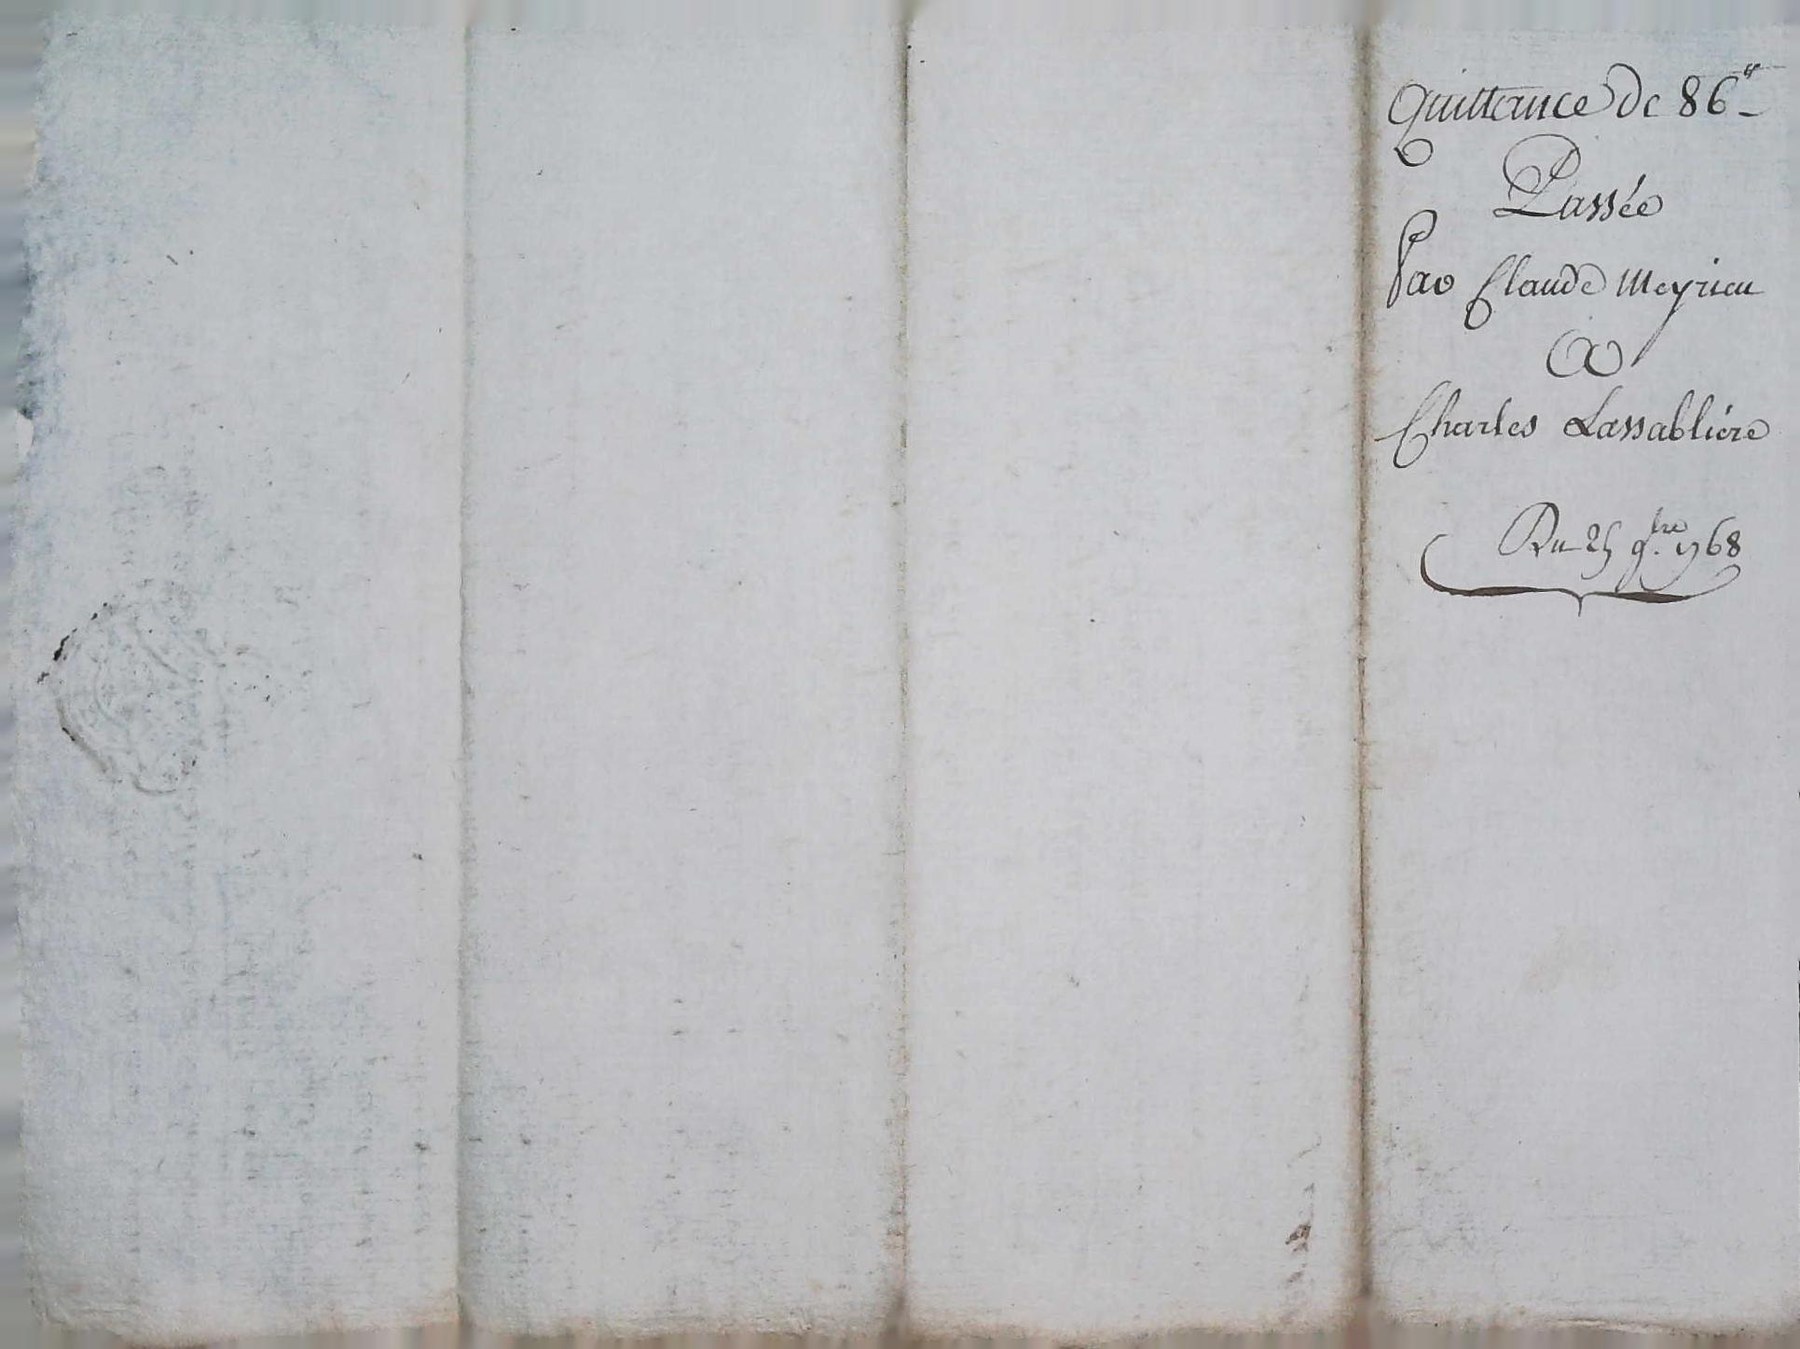 Quittance de 86#
Passée
Par Claude Meyrieu
A
Charles Lassabliére
Du 25 9bre 1768